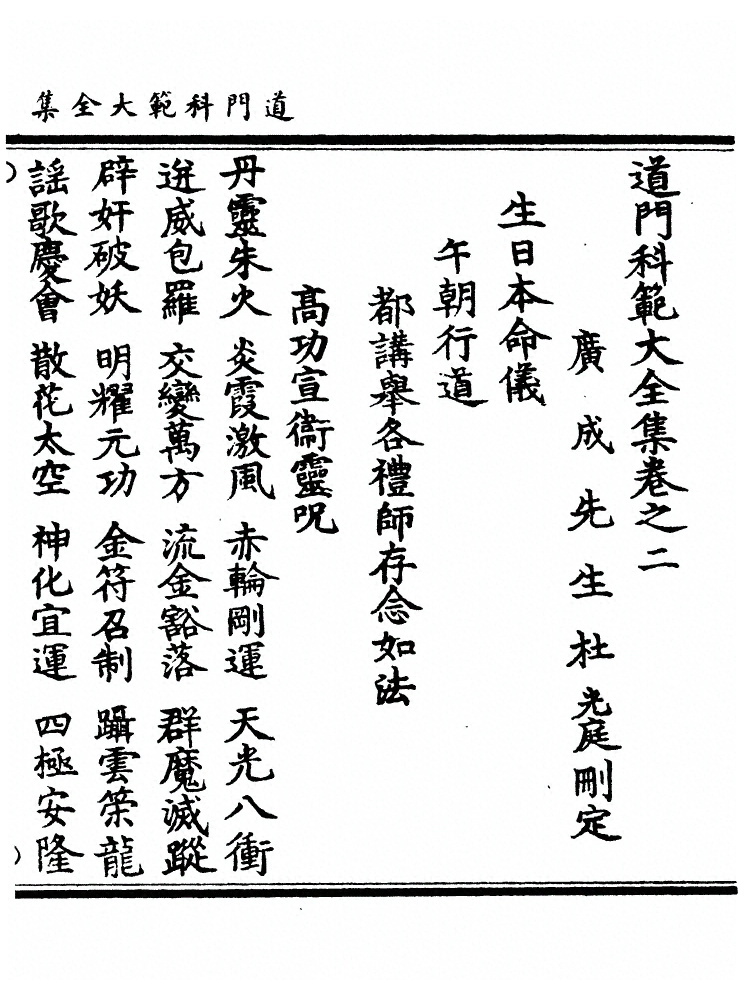 道門科範大全集
道門科範大全集卷之二
廣成先生杜光庭刪定
生日本命儀
午朝行道
都講舉各禮師存念如法
高功宣衞靈呪
丹靈朱火 炎霞激風 赤輪剛運 天光八衝
迸威包羅 交變萬方 流金豁落 群魔滅蹤
辟奸破妖 明耀元功 金符召制 躡雲策龍
謡歌慶會 散花太空 神化宜運 四極安隆